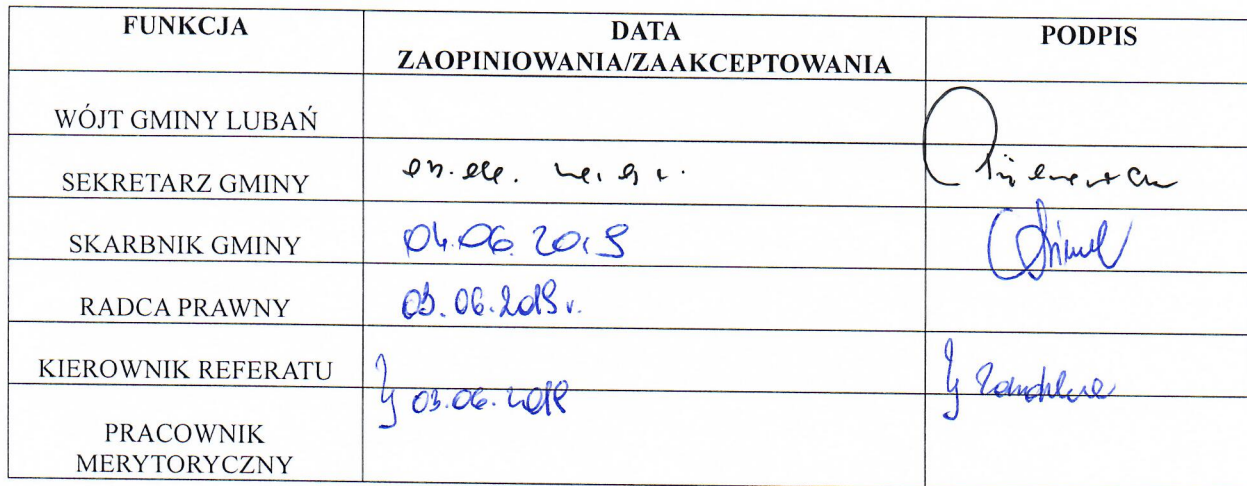 FUNKCJA
DATA
ZAOPINIOWANIA/ZAAKCEPTOWANIA
PODPIS
WÓJT GMINY LUBAŃ
SEKRETARZ GMINY
SKARBNIK GMINY 04.06.2019
RADCA PRAWNY 03.06.2019 r.
KIEROWNIK REFERATU
03.06.2019
PRACOWNIK
MERYTORYCZNY